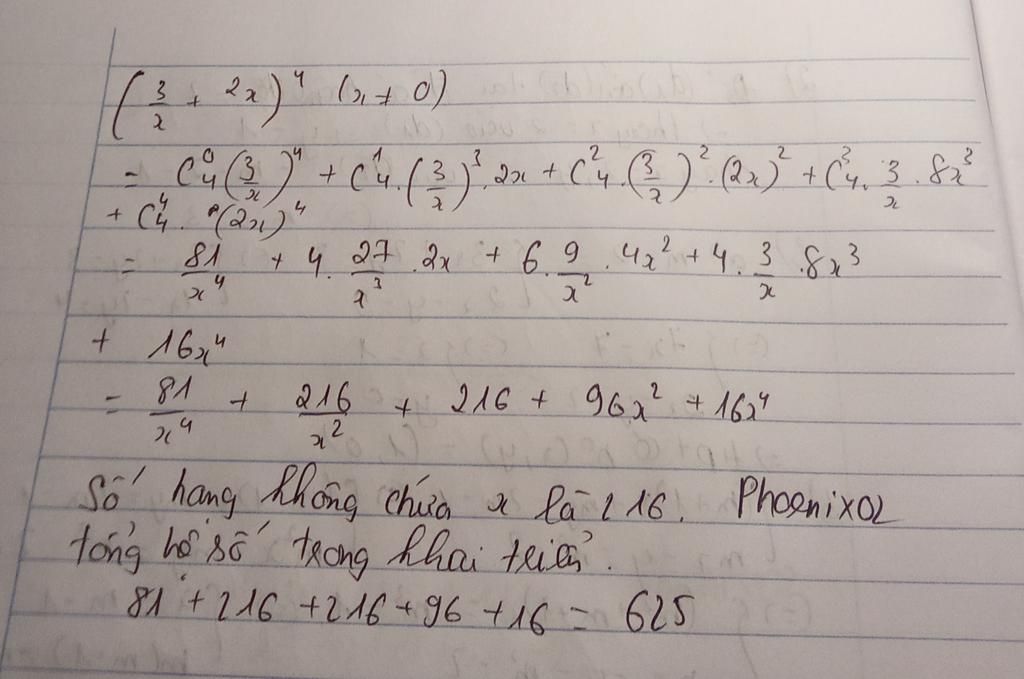 (3/x + 2x)⁴ (x ≠ 0)
= C⁰₄(3/x)⁴ + C¹₄.(3/x)³.2x + C²₄.(3/x)².(2x)² + C³₄.3/x.8x³
+ C⁴₄.(2x)⁴
= 81/x⁴ + 4.27/x³.2x + 6.9/x².4x² + 4.3/x.8x³
+ 16x⁴
= 81/x⁴ + 216/x² + 216 + 96x² + 16x⁴
Số hang không chứa x là 216. Phoenix02
tổng hệ số trong khai triển.
81 + 216 + 216 + 96 + 16 = 625